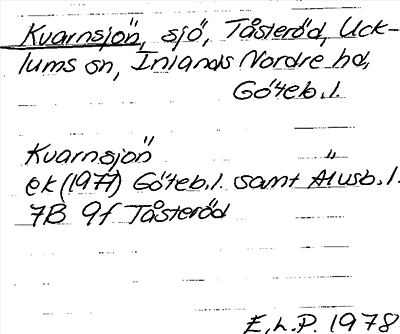 Kvarnsjön, sjö, Tåsteröd, Uck-
lums sn, Inlands Nordre hd,
Göteb. l.
Kvarnsjön
ek (1977) Göteb. l. samt Älvsb. l.
7B 9f Tåsteröd
E.L.P. 1978